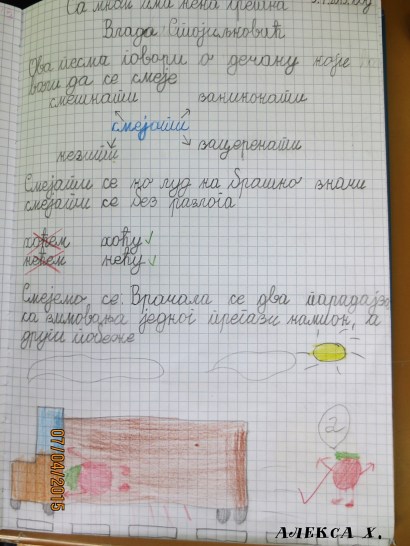 Са мном има нека грешка
Влада Стојиљковић
Ова песма говори о дечаку који
воли да се смеје
смешкати закикотати
смејати
церити зацеренати
Смејати се ко луд на брашно значи
смејати се без разлога
хоћем хоћу ✓
нећем нећу ✓
Смејемо се. Враћала се два парадајза
са зимовања једног прегази камион, а
други побеже
2
07/04/2015
АЛЕКСА Х.